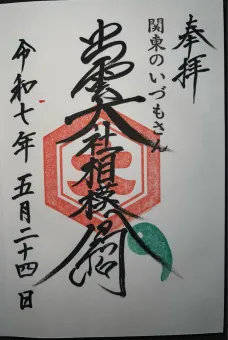 奉拝
関東のいづもさん
出雲大社相模分祠
令和七年 五月二十四日